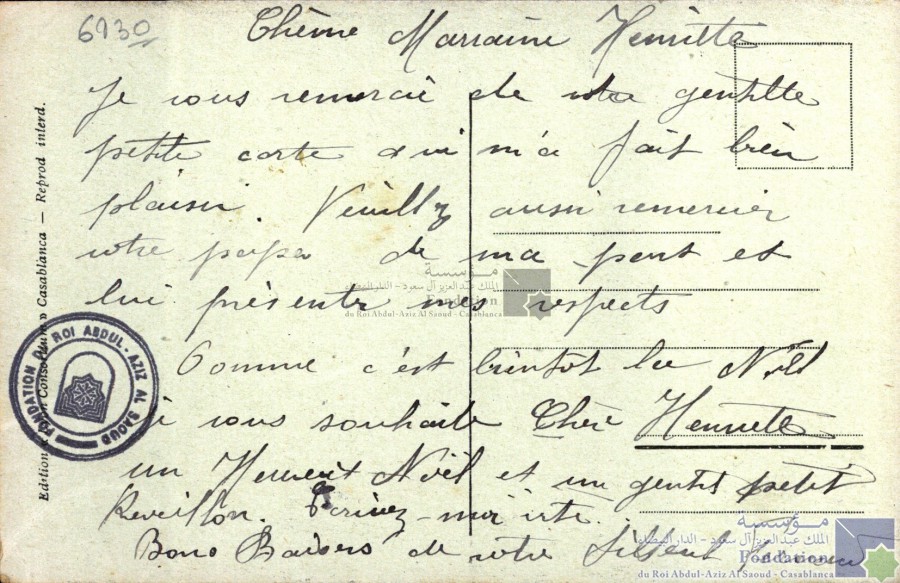 6930
Chème Marraine Henriette
Je vous remercie de votre gentille
petite carte qui m'a fait bien
plaisir. Veuillez aussi remercier
votre papa de ma part et
lui présenter mes respects
Comme c'est bientot la Noël
je vous souhaite Chère Henriette
un Heureux Noël et un gentil petit
Reveillon. Ecrivez-moi vite.
Bons Baisers de votre filleul
Edition Casablanca — Reprod interd.
FONDATION DU ROI ABDUL-AZIZ AL SAOUD
مؤسسة
الملك عبد العزيز آل سعود - الدار البيضاء
Fondation
du Roi Abdul-Aziz Al Saoud - Casablanca
مؤسسة
الملك عبد العزيز آل سعود - الدار البيضاء
Fondation
du Roi Abdul-Aziz Al Saoud - Casablanca